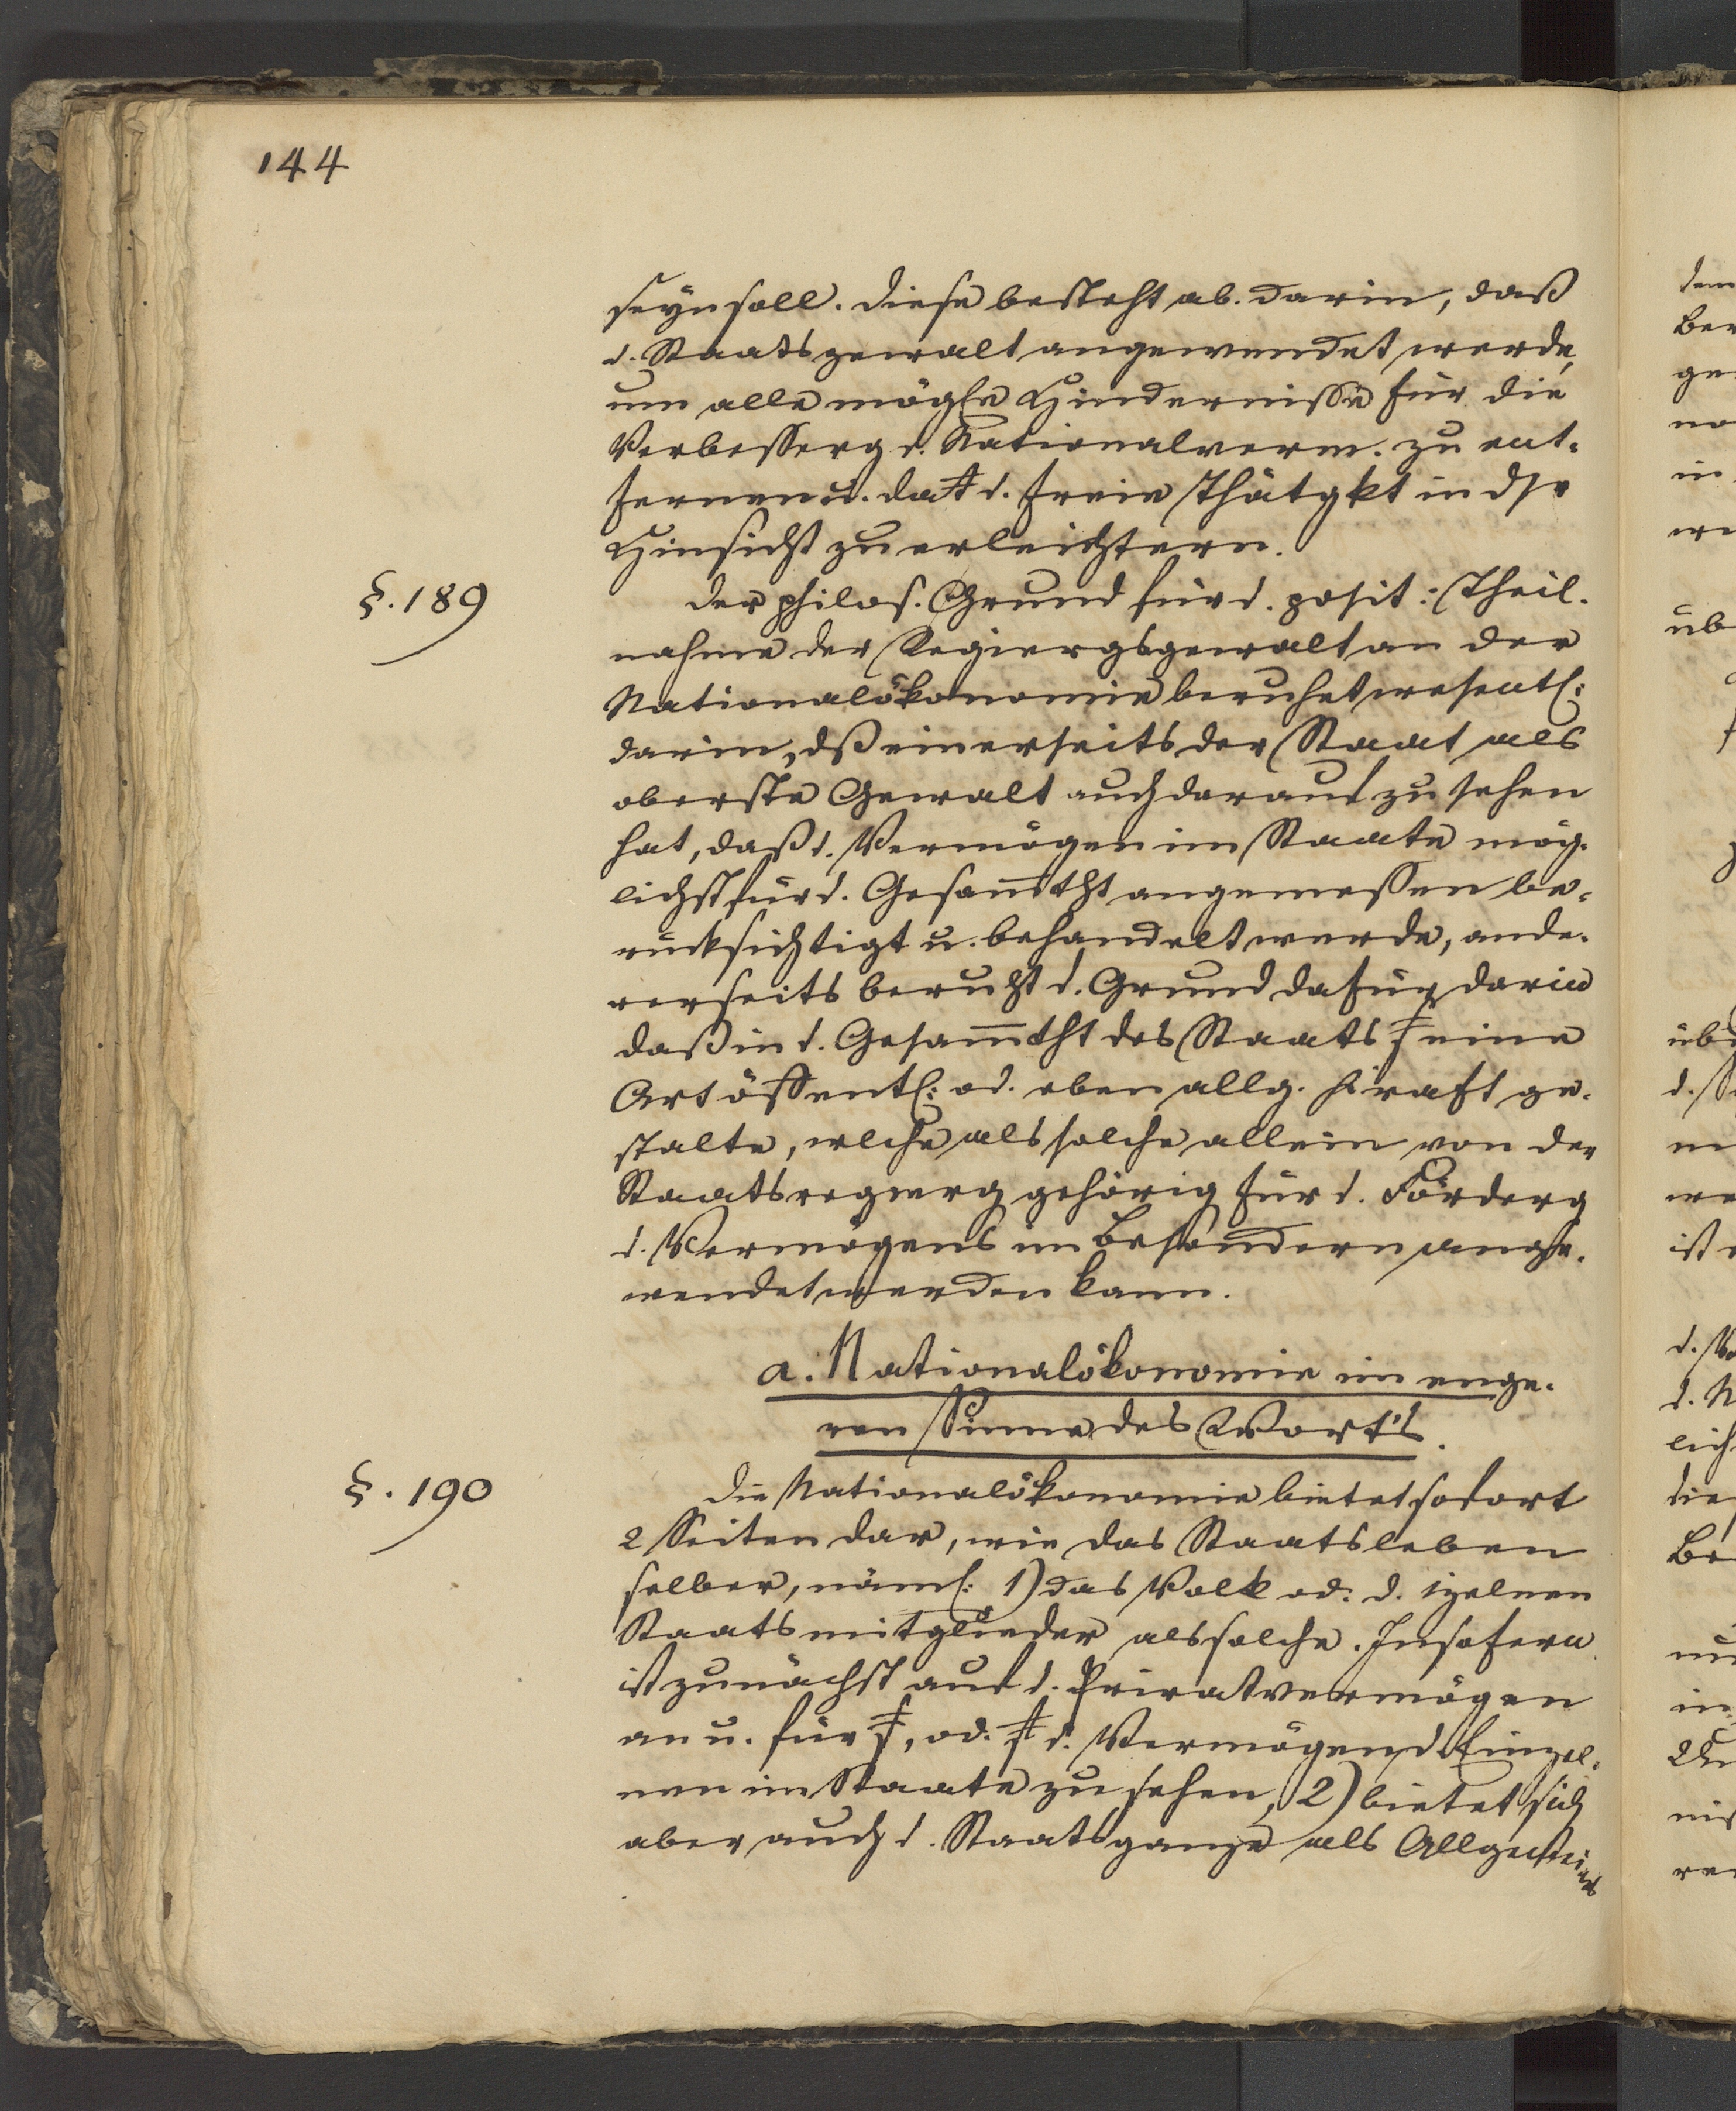 144
seyn soll. Diese besteht ab. darin, daß
d. Staatsgewalt angewendet werde,
um alle mögle Hindernisse für die
Verbesserg d. Nationalverm. zu ent-
fernen u. d. freie Thätgkt in dsr
Hinsicht zu erleichtern.
§. 189
Der philos. Grund für d. posit: Theil-
nahme der Regiergsgewalt an der
Nationalökonomie beruhet wesentl:
darin, dß einerseits der Staat als
oberste Gewalt auch darauf zu sehen
hat, daß d. Vermögen im Staate mög-
lichst für d. Gesam̅tht angemessen be-
rücksichtigt u. behandelt werde, ande-
rerseits beruht d. Grund dafür darin
daß in d. Gesam̅tht des Staats eine
Art öffentl: od. eben allg. Kraft ge-
stalte, wlche als solche allein von der
Staatsregierg gehörig für d. Förderg
d. Vermögens im Besondern ange-
wendet werden kann.
a. Nationalökonomie im enge-
ren Sinne des Wort's.
§. 190
Die Nationalökonomie bietet sofort
2 Seiten dar, wie das Staatsleben
selber, näml: 1) das Volk od. d. 1zelnen
Staatsmitglieder als solche. Insofern
ist zunächst auf d. Privatvermögen
an u. für, od. d. Vermögen d. Einzel-
nen im Staate zu sehen, 2) bietet sich
aber auch d. Staatsganze als Allgemeines